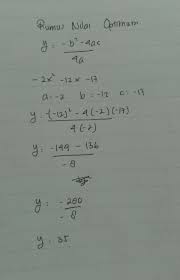 Rumus Nilai Optimum
y = -b² - 4ac / 4a
-2x² - 12x - 17
a = -2 b = -12 c = -17
y = -(-12)² - 4(-2)(-17) / 4(-2)
y = -144 - 136 / -8
y = -280 / -8
y = 35